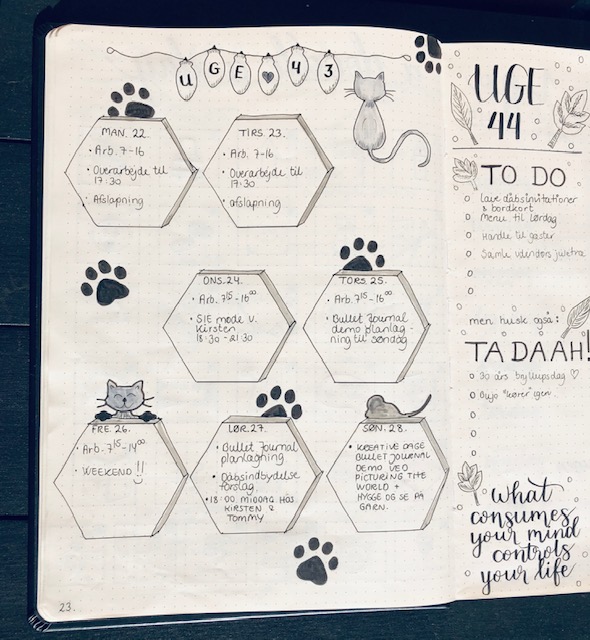 UGE ♥ 43
MAN. 22.
• Arb. 7-16
• Overarbejde til
17:30
• Afslapning
TIRS. 23.
• Arb. 7-16
• Overarbejde til
17:30
• afslapning
ONS. 24.
• Arb. 7¹⁵-16⁰⁰
• SIE møde v.
Kirsten
18:30 - 21:30
TORS. 25.
• Arb. 7¹⁵-16⁰⁰
• Bullet Journal
demo planlæg-
ning til søndag
FRE. 26.
• Arb. 7¹⁵-14⁰⁰
• WEEKEND!!
LØR. 27.
• Bullet Journal
planlægning
• Dåbsindbydelse
forslag.
• 18:00 MIDDAG HOS
KIRSTEN &
TOMMY
SØN. 28.
• KREATIVE DAGE
BULLET JOURNAL
DEMO VED
PICTURING THE
WORLD +
HYGGE OG SE PÅ
GARN.
23.
UGE
44
TO DO
lave dåbsinvitationer
& bordkort
Menu til lørdag
Handle til gæster
Samle udendørs juletræ
men husk også:
TA DAAH!
30 års bryllupsdag ♡
Bujo "kører" igen.
what
consumes
your mind
controls
your life